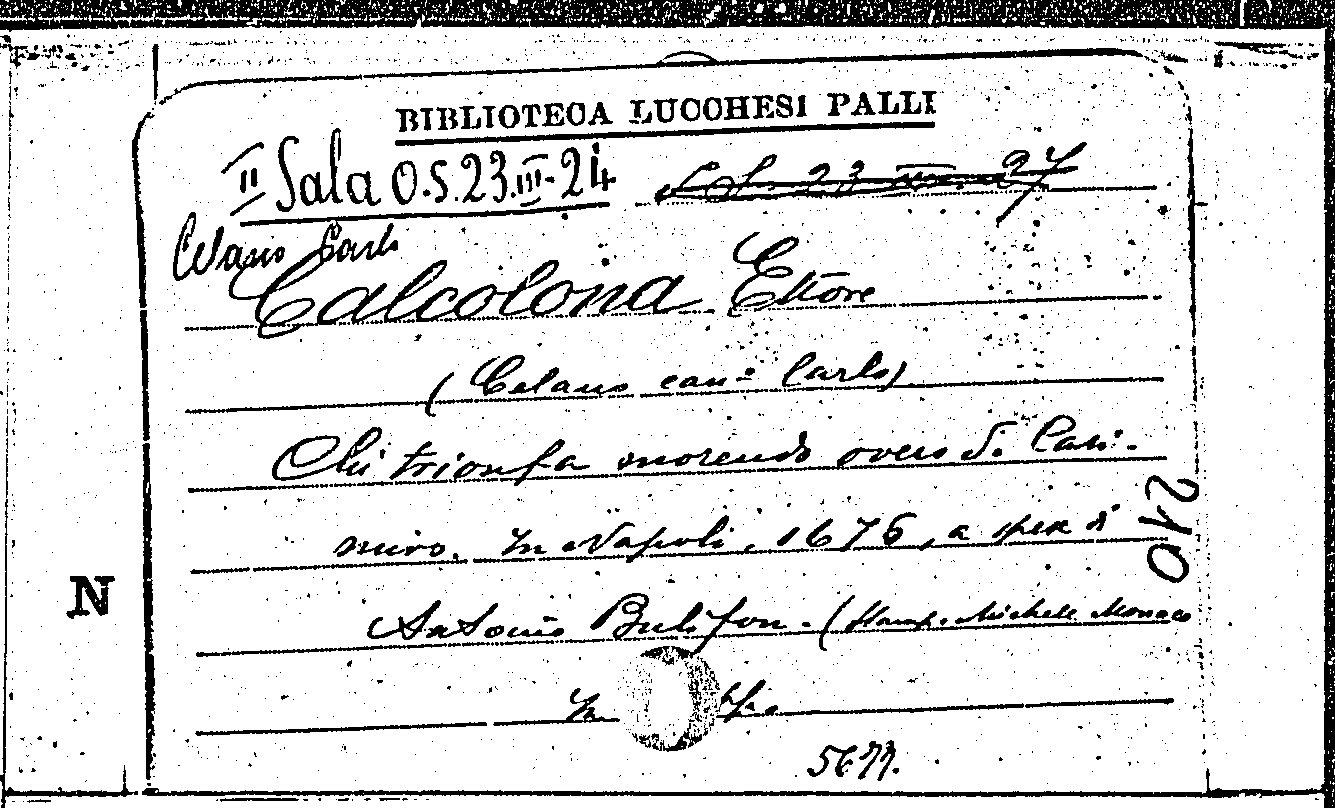 BIBLIOTECA LUCCHESI PALLI
II Sala O.S.23.III-24
Celano Carlo
Calcolona Ettore
(Celano can.º Carlo)
Chi trionfa morendo overo S. Casi-
miro. In Napoli, 1676, a spesa di
Antonio Bulifon. (Stamp. Michele Monaco
In
5677.
210
N